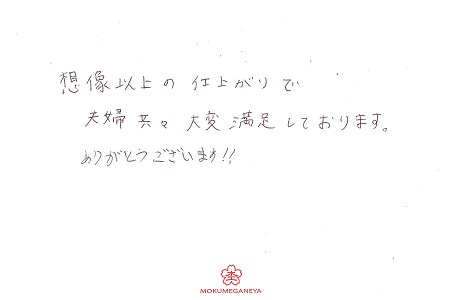 想像以上の仕上がりで
夫婦共々大変満足しております。
ありがとうございます!!
MOKUMEGANEYA